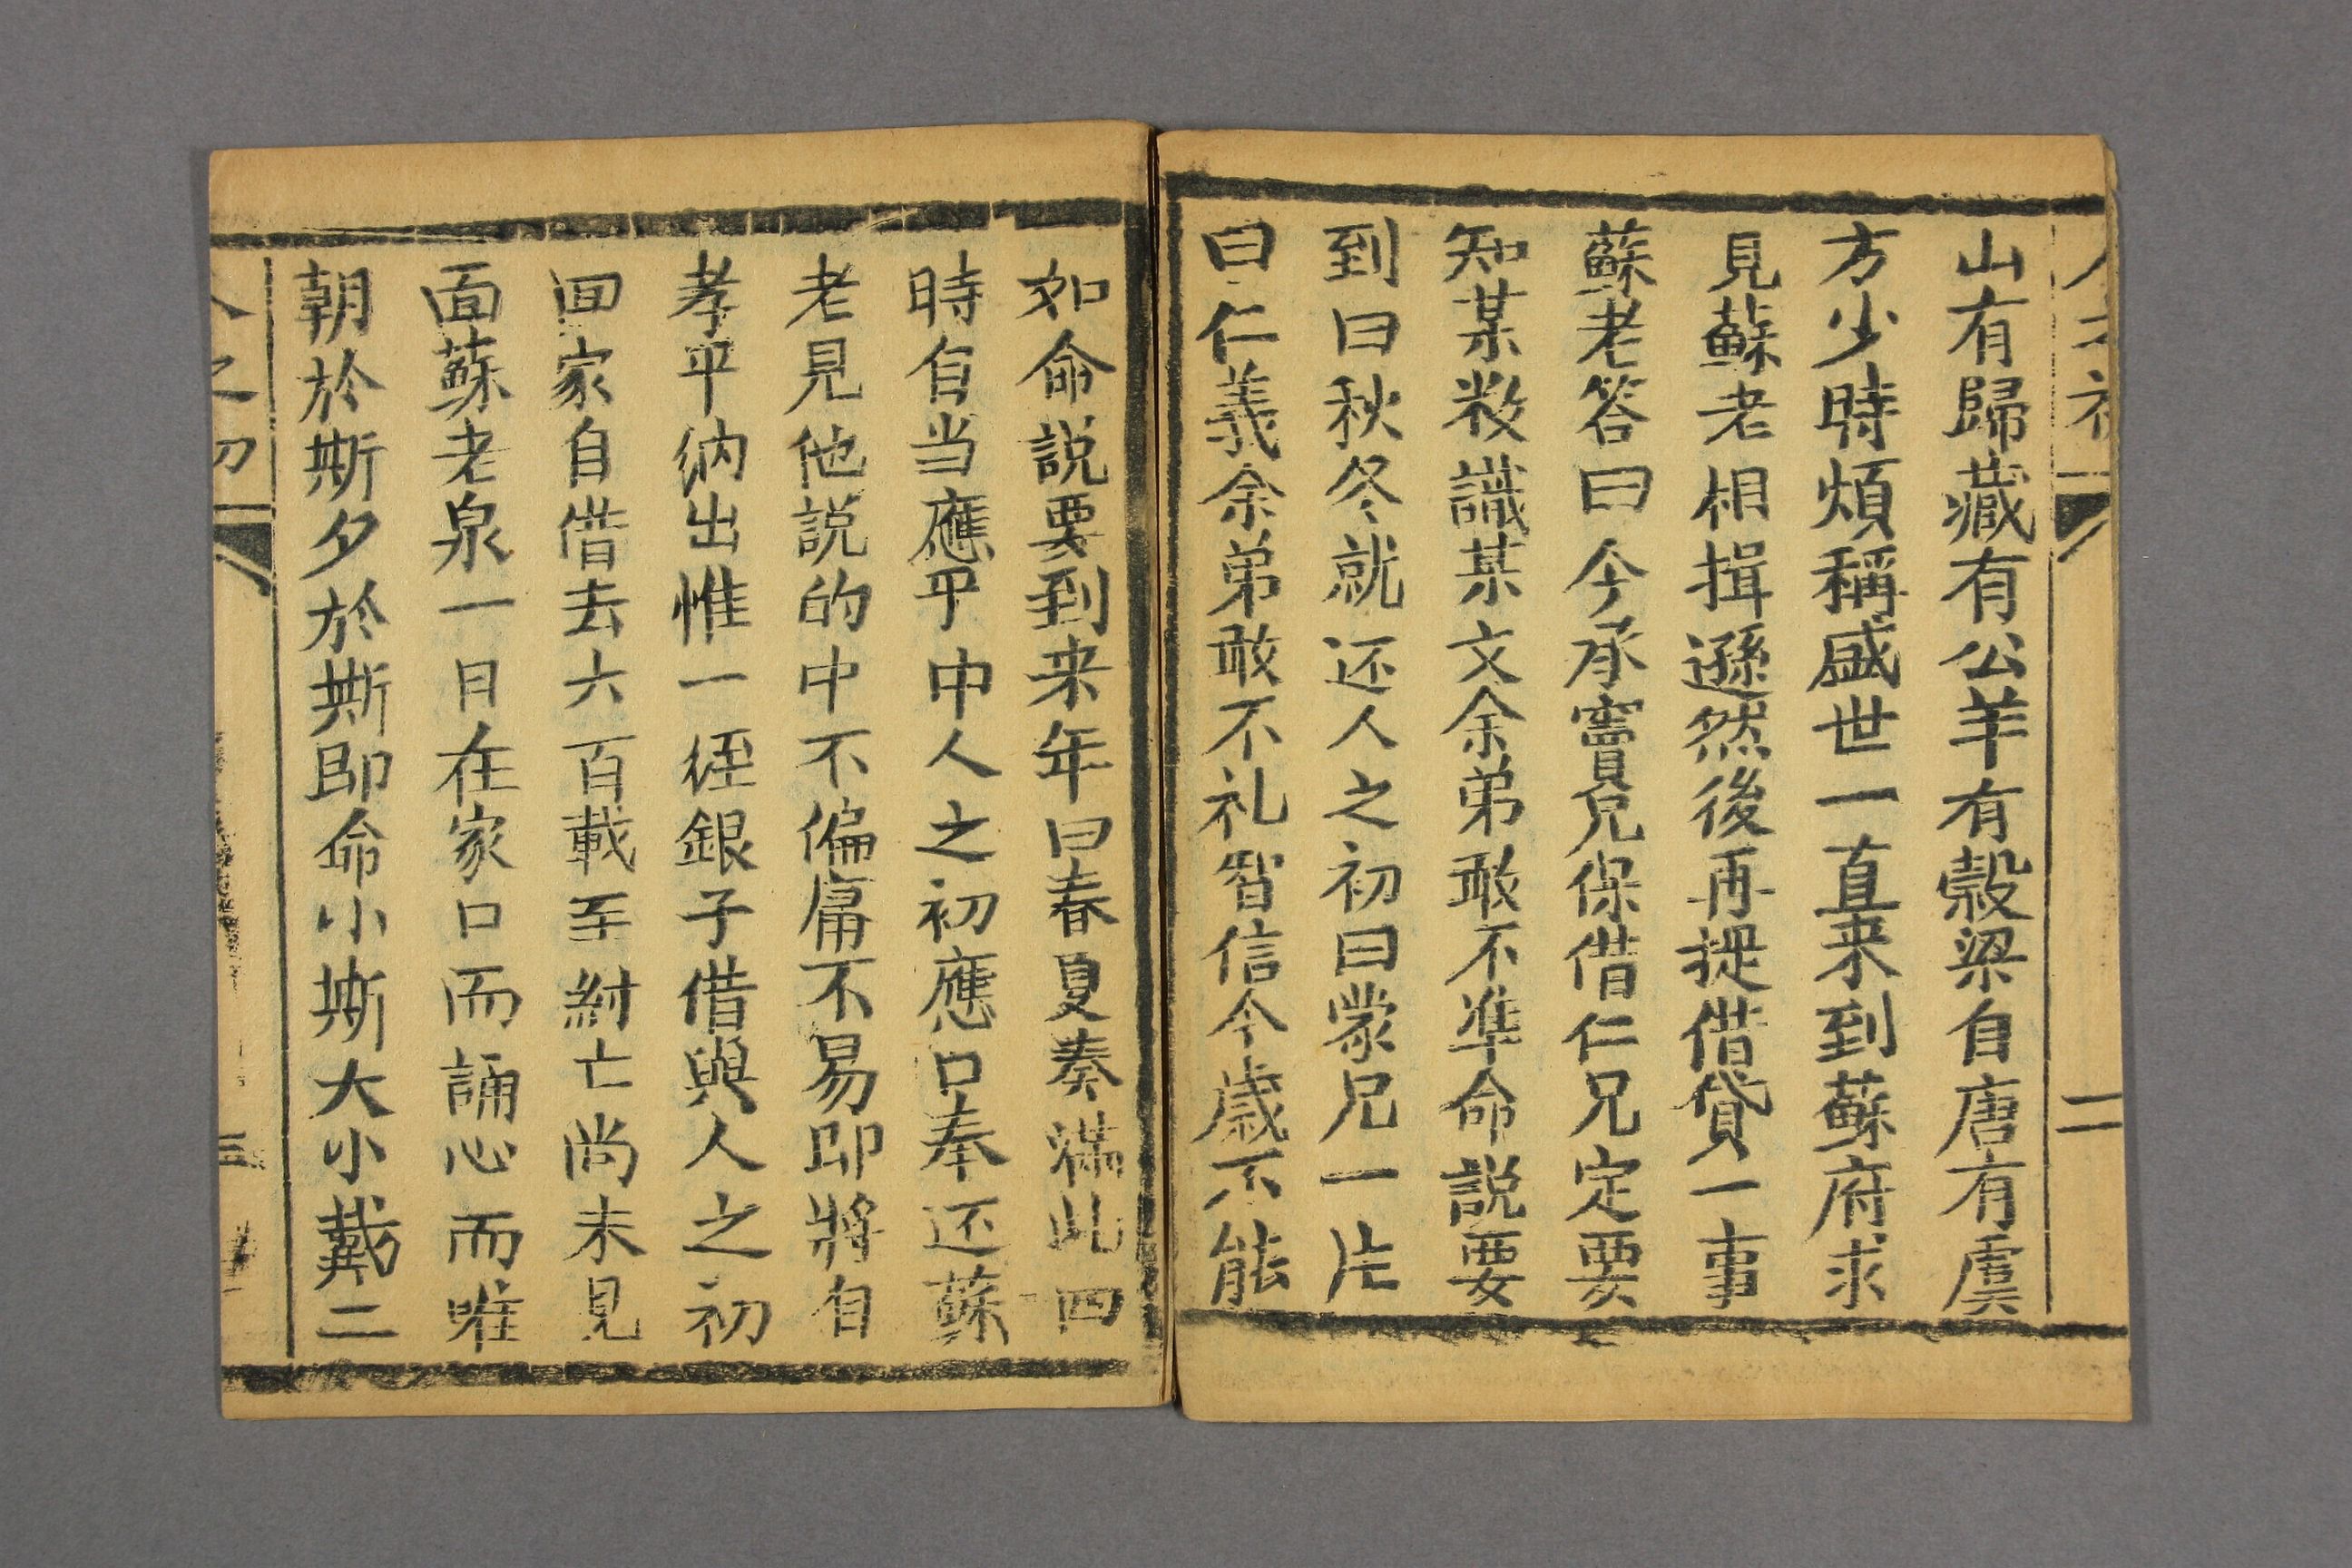 人之初
二
山有歸藏有公羊有穀梁自唐有虞
方少時煩稱盛世一直来到蘇府求
見蘇老相揖遜然後再提借貸一事
蘇老答曰今承竇兄保借仁兄定要
知某数識某文余弟敢不凖命説要
到曰秋冬就还人之初曰蒙兄一片
曰仁義余弟敢不礼智信今歲不能
如命説要到来年曰春夏奏滿此四
時自当應乎中人之初應口奉还蘇
老見他説的中不偏庸不易即將自
孝平納出惟一經銀子借與人之初
回家自借去六百載至紂亡尚未見
面蘇老泉一日在家口而誦心而唯
朝於斯夕於斯即命小斯大小戴二
人之初
三